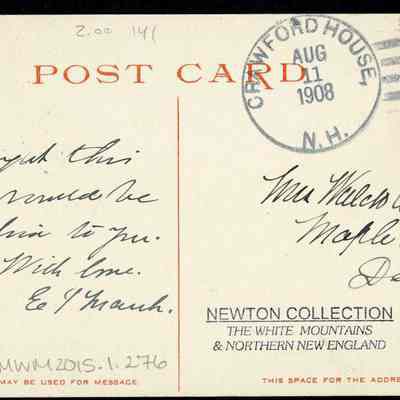 2.00 141
POST CARD
CRAWFORD HOUSE,
AUG
11
1908
N.H.
this
would be
to you.
With love.
Mrs
Maple
NEWTON COLLECTION
THE WHITE MOUNTAINS
& NORTHERN NEW ENGLAND
MWM2015.1.276
MAY BE USED FOR MESSAGE
THIS SPACE FOR THE ADDRE